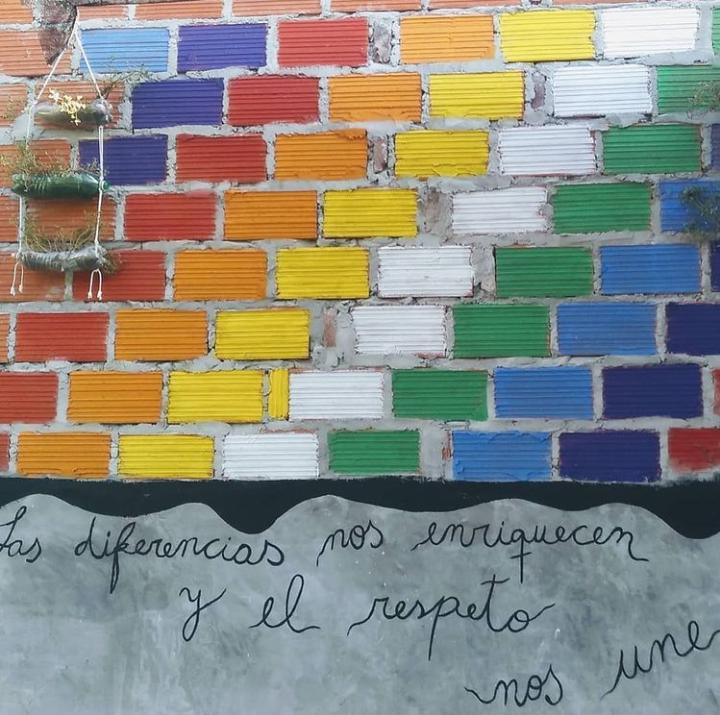 Las diferencias nos enriquecen
y el respeto
nos une